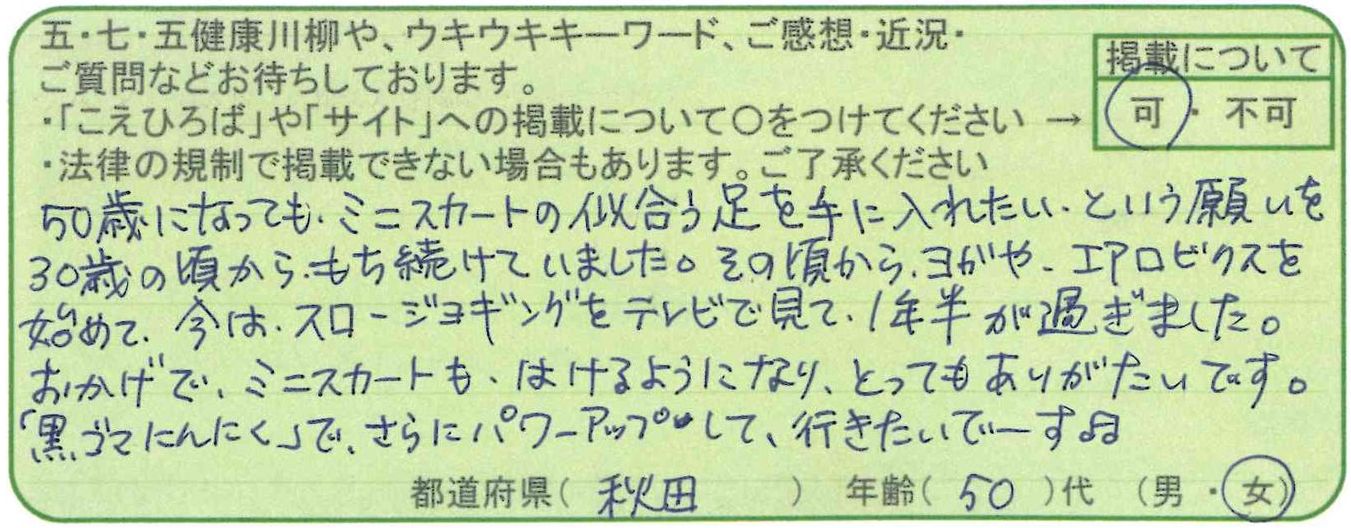 五・七・五健康川柳や、ウキウキキーワード、ご感想・近況・
ご質問などお待ちしております。
・「こえひろば」や「サイト」への掲載について○をつけてください →
・法律の規制で掲載できない場合もあります。ご了承ください
掲載について
可・不可
50歳になっても、ミニスカートの似合う足を手に入れたい、という願いを
30歳の頃から、もち続けていました。その頃から、ヨガや、エアロビクスを
始めて、今は、スロージョギングをテレビで見て、1年半が過ぎました。
おかげで、ミニスカートも、はけるようになり、とってもありがたいです。
「黒ゴマにんにく」で、さらにパワーアップして、行きたいでーす
都道府県(秋田) 年齢(50)代 (男・女)